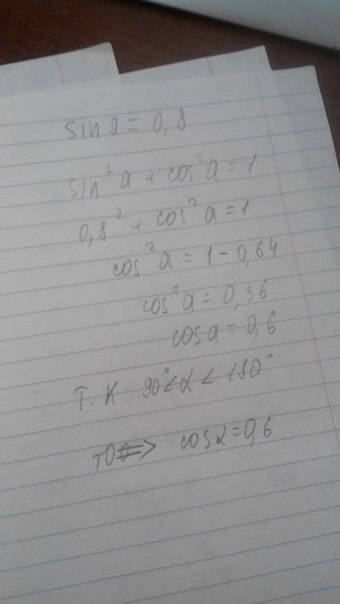 sin a = 0,8
sin² a + cos² a = 1
0,8² + cos² a = 1
cos² a = 1 - 0,64
cos² a = 0,36
cos a = 0,6
Т.К 90° < α < 180°
ТО => cos α = 0,6